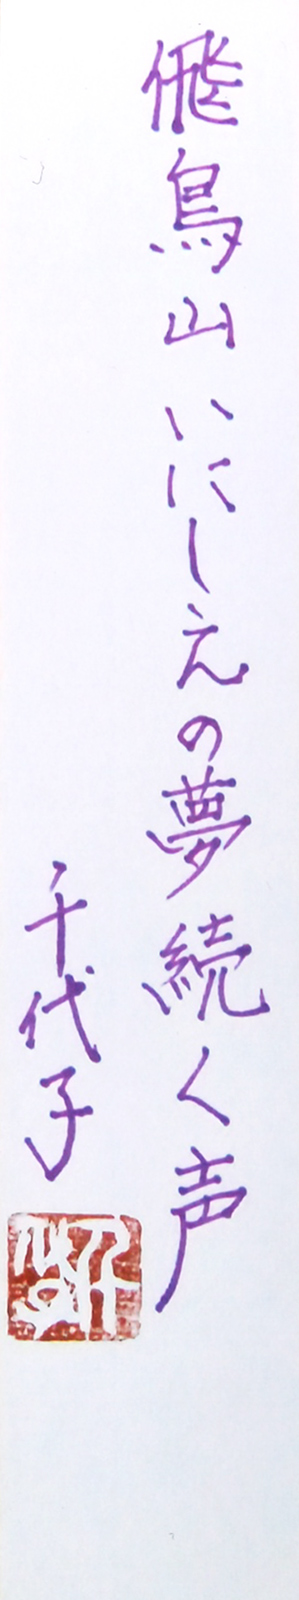 飛鳥山いにしえの夢続く声
千代子